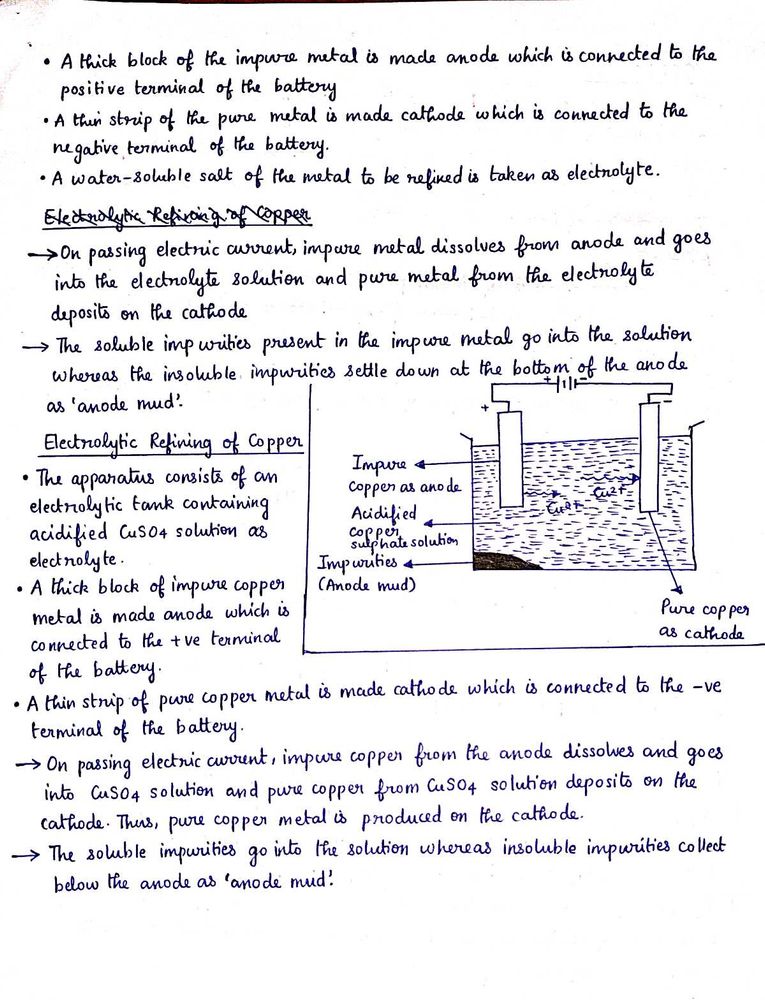 • A thick block of the impure metal is made anode which is connected to the
positive terminal of the battery
• A thin strip of the pure metal is made cathode which is connected to the
negative terminal of the battery.
• A water-soluble salt of the metal to be refined is taken as electrolyte.
Electrolytic Refining of Copper
→ On passing electric current, impure metal dissolves from anode and goes
into the electrolyte solution and pure metal from the electrolyte
deposits on the cathode
→ The soluble impurities present in the impure metal go into the solution
whereas the insoluble impurities settle down at the bottom of the anode
as 'anode mud'.
Electrolytic Refining of Copper
• The apparatus consists of an
electrolytic tank containing
acidified CuSO4 solution as
electrolyte.
• A thick block of impure copper
metal is made anode which is
connected to the +ve terminal
of the battery.
+ -
+ -
Impure
copper as anode
Acidified
copper
sulphate solution
Impurities
(Anode mud)
Cu2+
Cu2+
Pure copper
as cathode
• A thin strip of pure copper metal is made cathode which is connected to the -ve
terminal of the battery.
→ On passing electric current, impure copper from the anode dissolves and goes
into CuSO4 solution and pure copper from CuSO4 solution deposits on the
cathode. Thus, pure copper metal is produced on the cathode.
→ The soluble impurities go into the solution whereas insoluble impurities collect
below the anode as 'anode mud'.